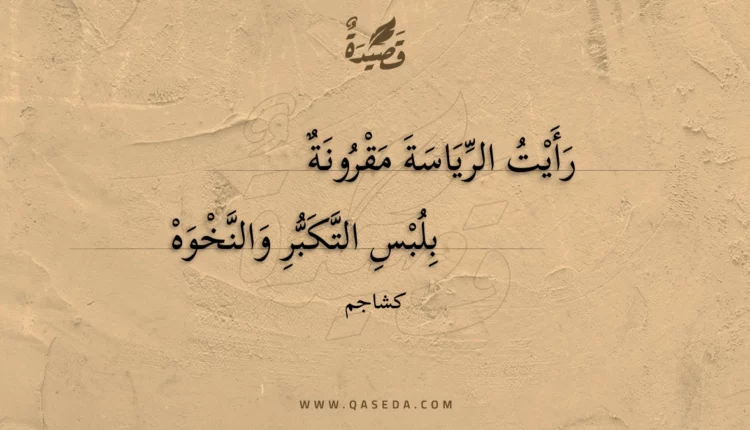 قَصِيدَةٌ
رَأَيْتُ الرِّيَاسَةَ مَقْرُونَةٌ
بِلُبْسِ التَّكَبُّرِ وَالنَّخْوَهْ
كشاجم
WWW.QASEDA.COM